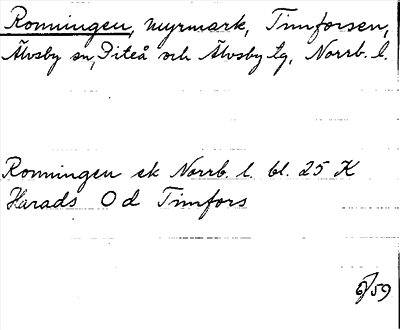 Ronningen, myrmark, Timforsen,
Älvsby sn, Piteå och Älvsby tg, Norrb. l.
Ronningen ek Norrb. l. bl. 25 K
Harads 0 d Timfors
6/59